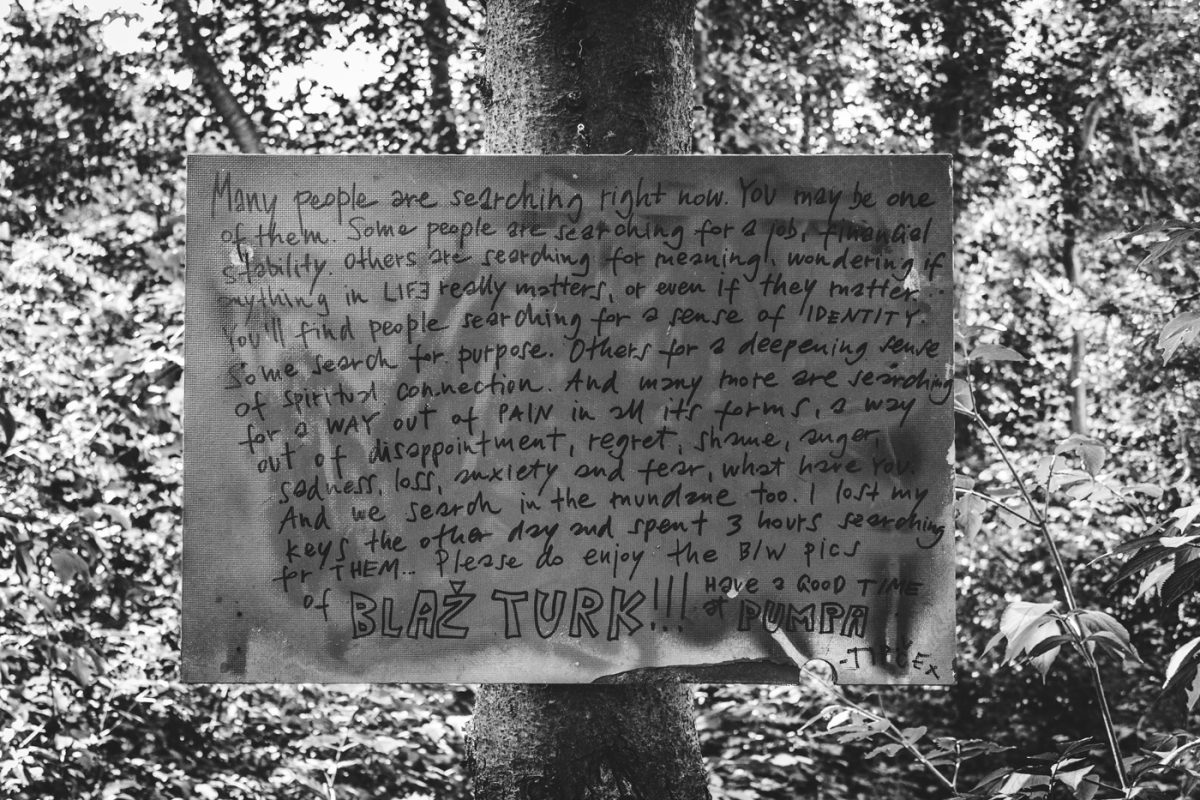 Many people are searching right now. YOU may be one
of them. Some people are searching for a job, financial
stability. Others are searching for meaning, wondering if
anything in LIFE really matters, or even if they matter...
You'll find people searching for a sense of IDENTITY.
Some search for purpose. Others for a deepening sense
of spiritual connection. And many more are searching
for a WAY out of PAIN in all its forms, a way
out of disappointment, regret, shame, anger,
sadness, loss, anxiety and fear, what have YOU.
And we search in the mundane too. I lost my
keys the other day and spent 3 hours searching
for THEM... Please do enjoy the B/W pics
of BLAŽ TURK!!! Have a GOOD TIME
at PUMPA